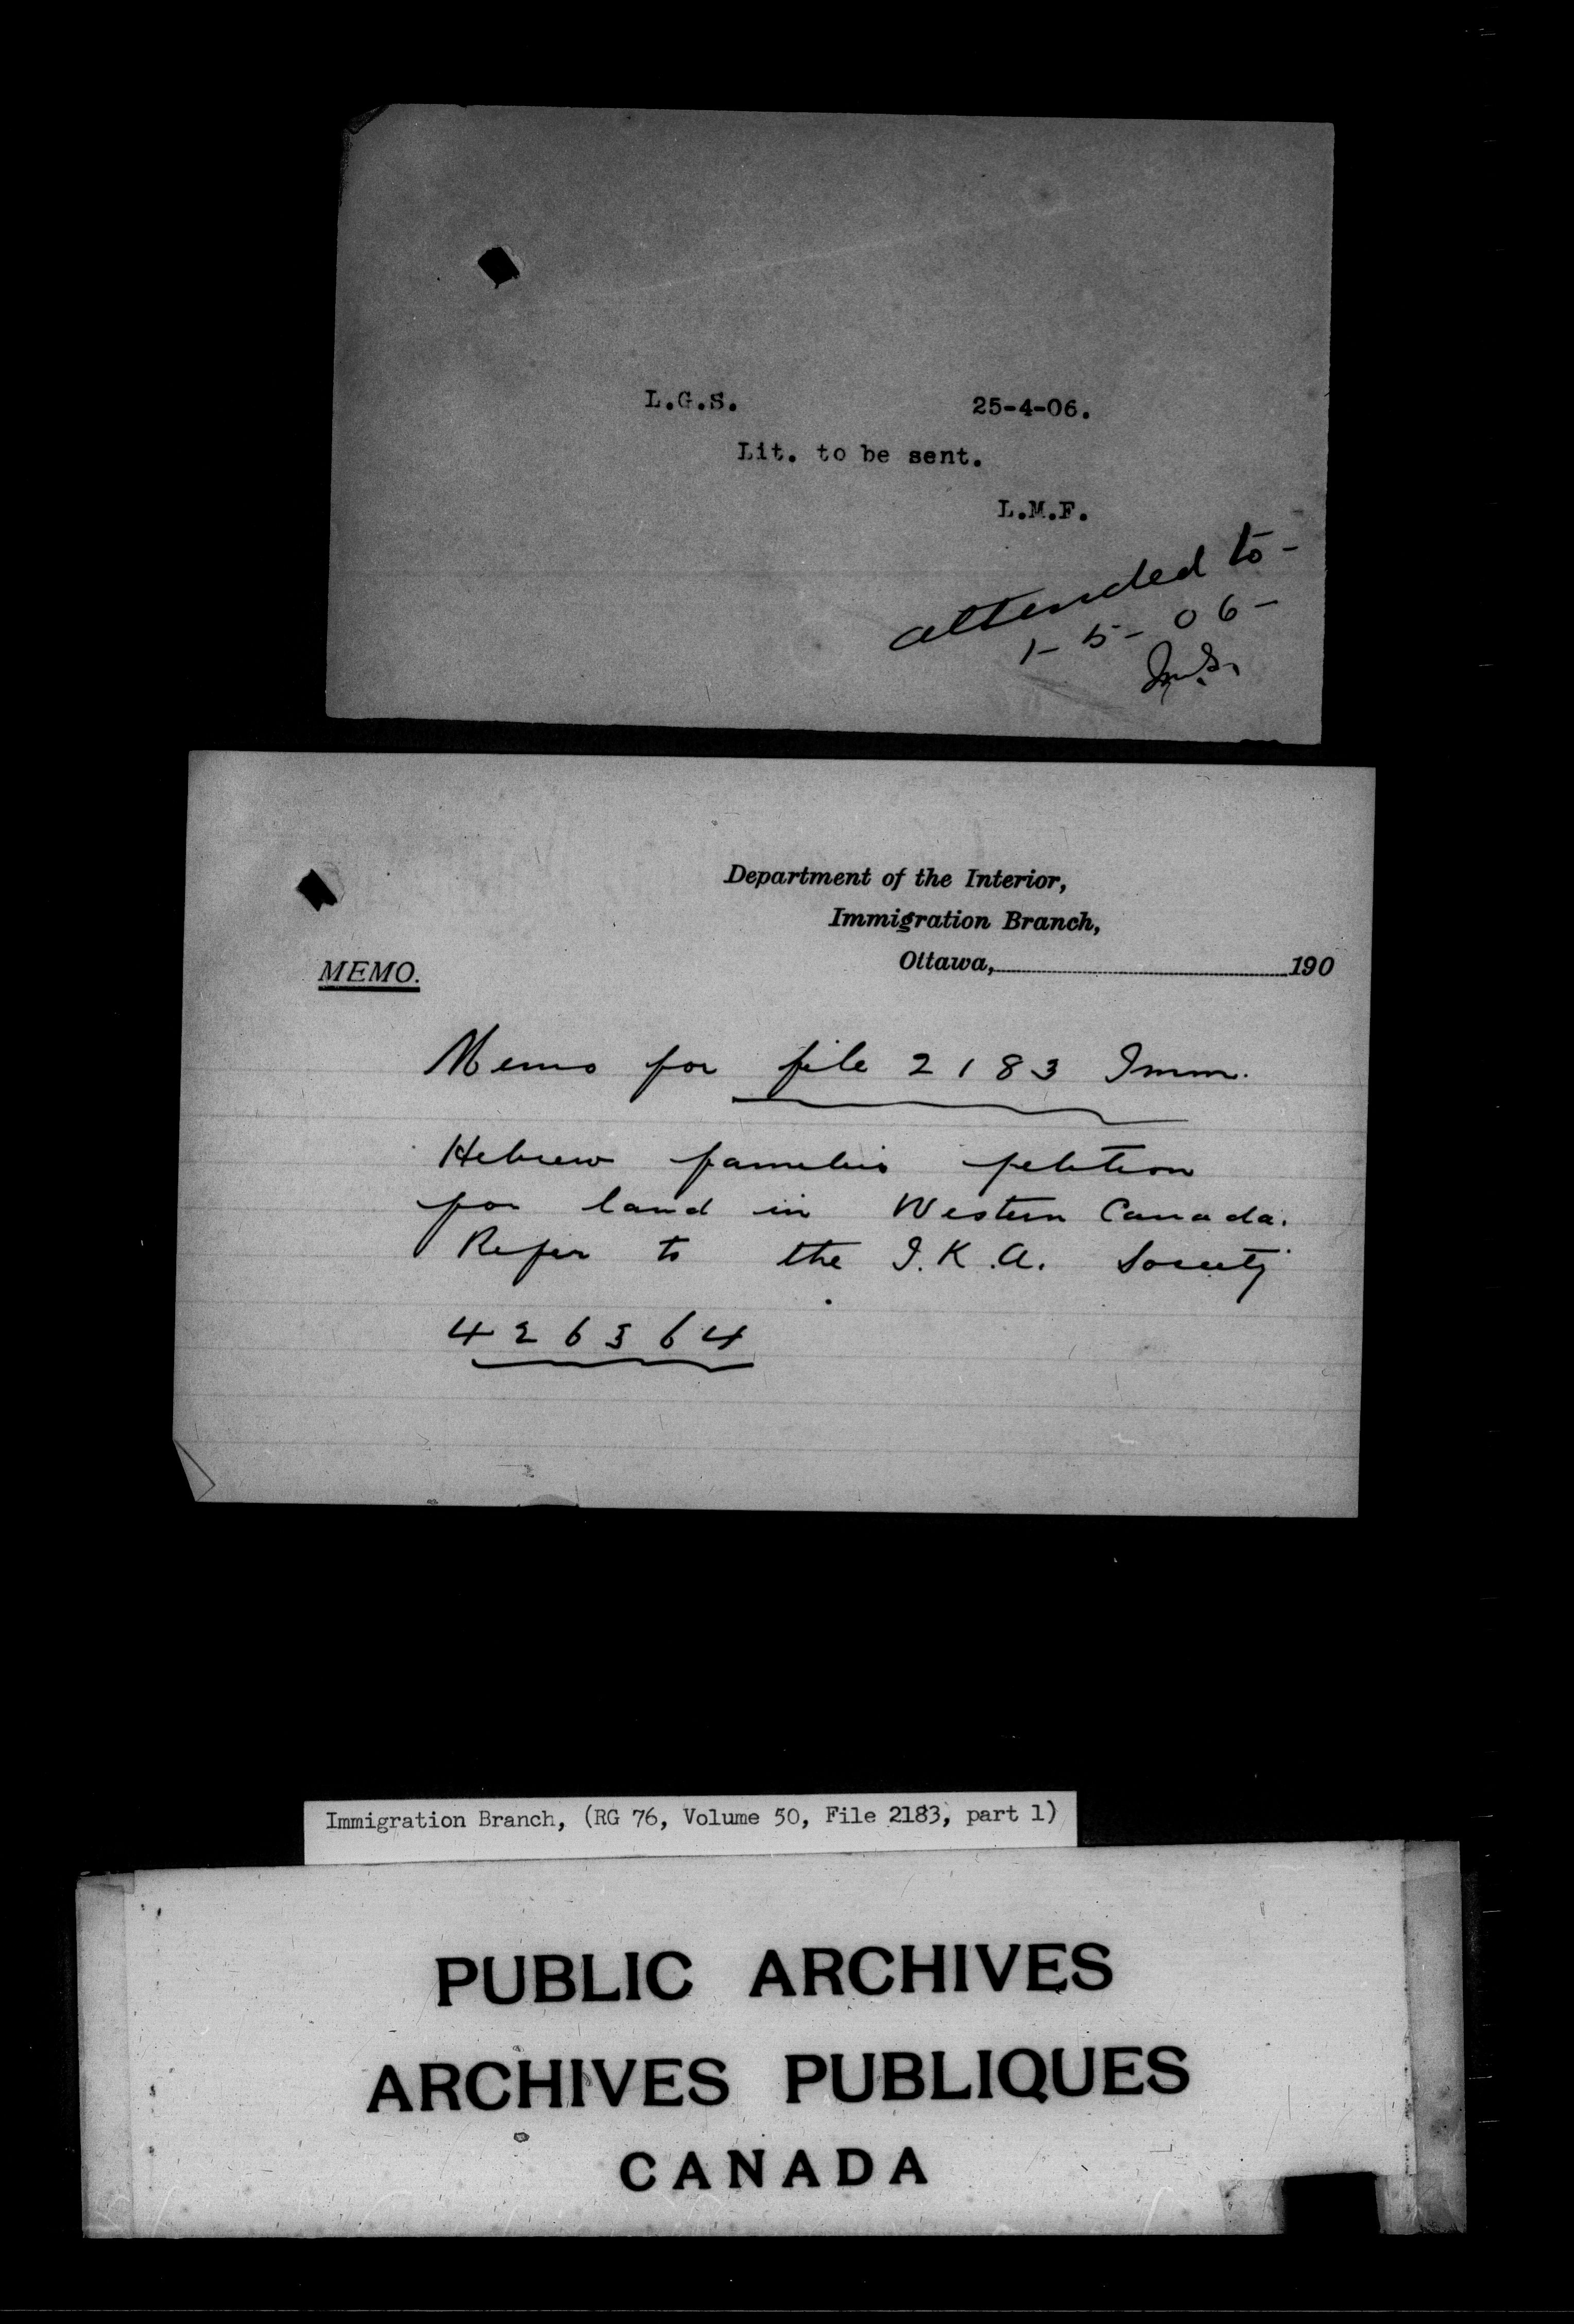 L.G.S. 25-4-06.
Lit. to be sent.
L.M.F.
attended to -
1-5-06-
Department of the Interior,
Immigration Branch,
Ottawa, 190
MEMO.
Memo for file 2183 Imm.
Hebrew families petition
for land in Western Canada.
Refer to the I.K.A. Society
426364
Immigration Branch, (RG 76, Volume 50, File 2183, part 1)
PUBLIC ARCHIVES
ARCHIVES PUBLIQUES
CANADA